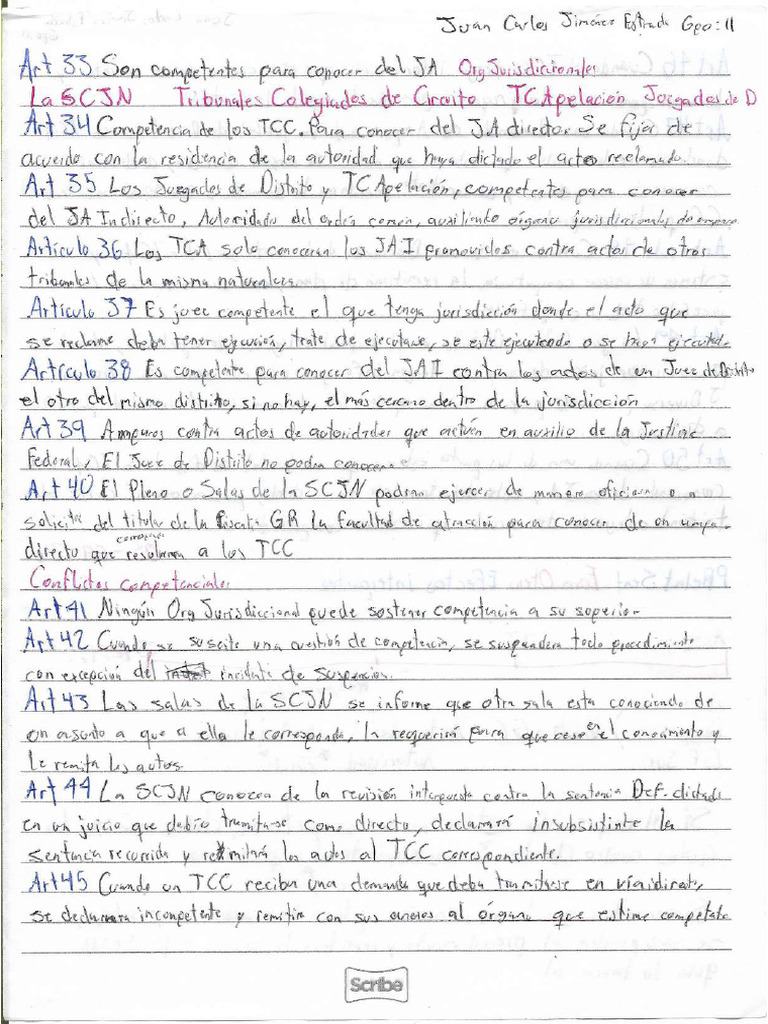 Juan Carlos Jiménez Estrada Gpo: 11
Art 33 Son competentes para conocer del JA Org Jurisdiccionales
La SCJN Tribunales Colegiados de Circuito TCApelación Juzgados de D
Art 34 Competencia de los TCC. Para conocer del JA director. Se fija de
acuerdo con la residencia de la autoridad que haya dictado el acto reclamado.
Art 35 Los Juzgados de Distrito y TCApelación, competentes para conocer
del JA Indirecto, Autoridades del orden común, auxilien órganos jurisdiccionales de amparo
Artículo 36 Los TCA solo conoceran los JAI promovidos contra actos de otros
tribunales de la misma naturaleza.
Artículo 37 Es juez competente el que tenga jurisdicción donde el acto que
se reclame deba tener ejecución, trate de ejecutarse, se este ejecutando o se haya ejecutado
Artículo 38 Es competente para conocer del JAI contra los actos de un Juez de Distrito
el otro del mismo distrito, si no hay, el más cercano dentro de la jurisdicción
Art 39 Amparos contra actos de autoridades que actúen en auxilio de la Justicia
Federal, El Juez de Distrito no podra conocer
Art 40 El Pleno o Salas de la SCJN podran ejercer de manera oficiosa o a
solicitud del titular de la Fiscalía GR la facultad de atracción para conocer de un amparo
directo que resolveran a los TCC
Conflictos competenciales
Art 41 Ningún Org Jurisdiccional puede sostener competencia a su superior
Art 42 Cuando se suscite una cuestión de competencia, se suspendera todo procedimiento
con excepción del incidente de suspención.
Art 43 Las salas de la SCJN se informe que otra sala esta conociendo de
un asunto a que a ella le corresponda, la requerirá para que cese en el conocimiento y
le remita los autos.
Art 44 La SCJN conozca de la revisión interpuesta contra la sentencia Def. dictada
en un juicio que debío tramitarse como directo, declarará insubsistinte la
sentencia recurrida y remitirá los autos al TCC correspondiente.
Art 45 Cuando un TCC reciba una demanda que deba tramitarse en vía indirecta,
se declarara incompetente y remitira con sus anexos al órgano que estime competente
Scribe